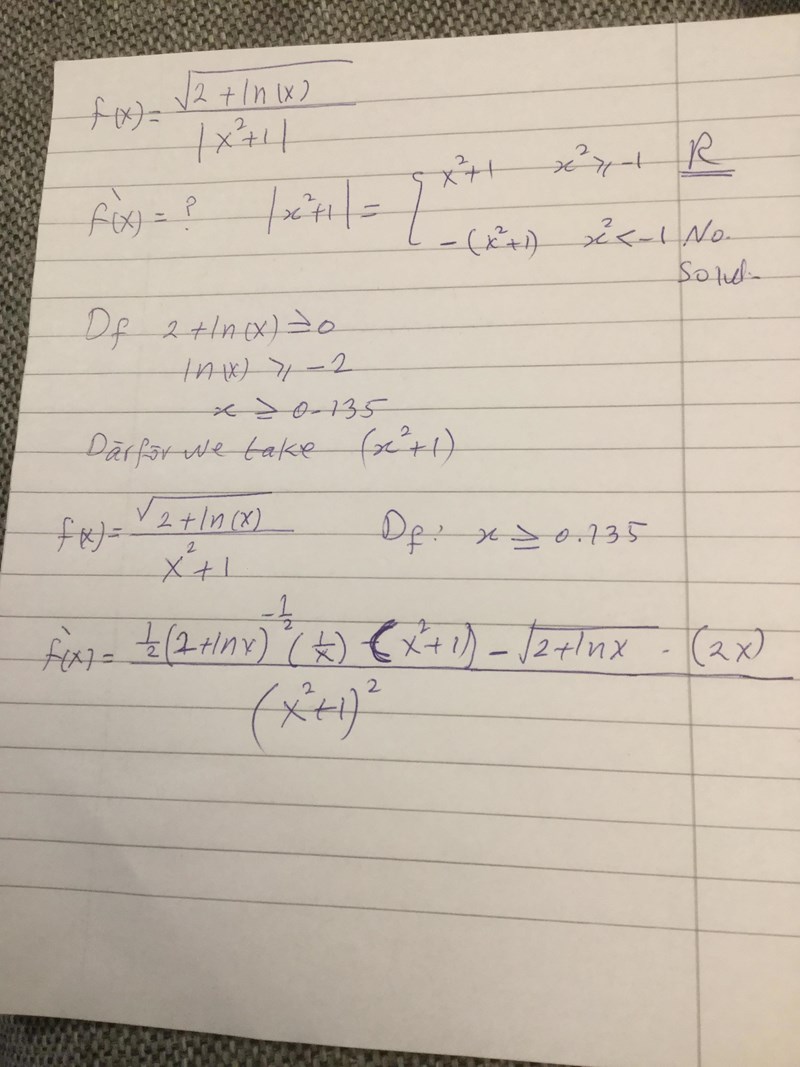 f(x) = √(2 + ln(x)) / |x²+1|
f'(x) = ? |x²+1| = { x²+1 x² ⩾ -1 R
-(x²+1) x² < -1 No.
Solud-
Df 2 + ln(x) ≥ 0
ln(x) ⩾ -2
x ≥ 0.135
Därför we take (x²+1)
f(x) = √(2 + ln(x)) / x²+1 Df: x ≥ 0.135
f'(x) = ½(2+lnx)^-½ (1/x) (x²+1) - √(2+lnx) · (2x) / (x²+1)²